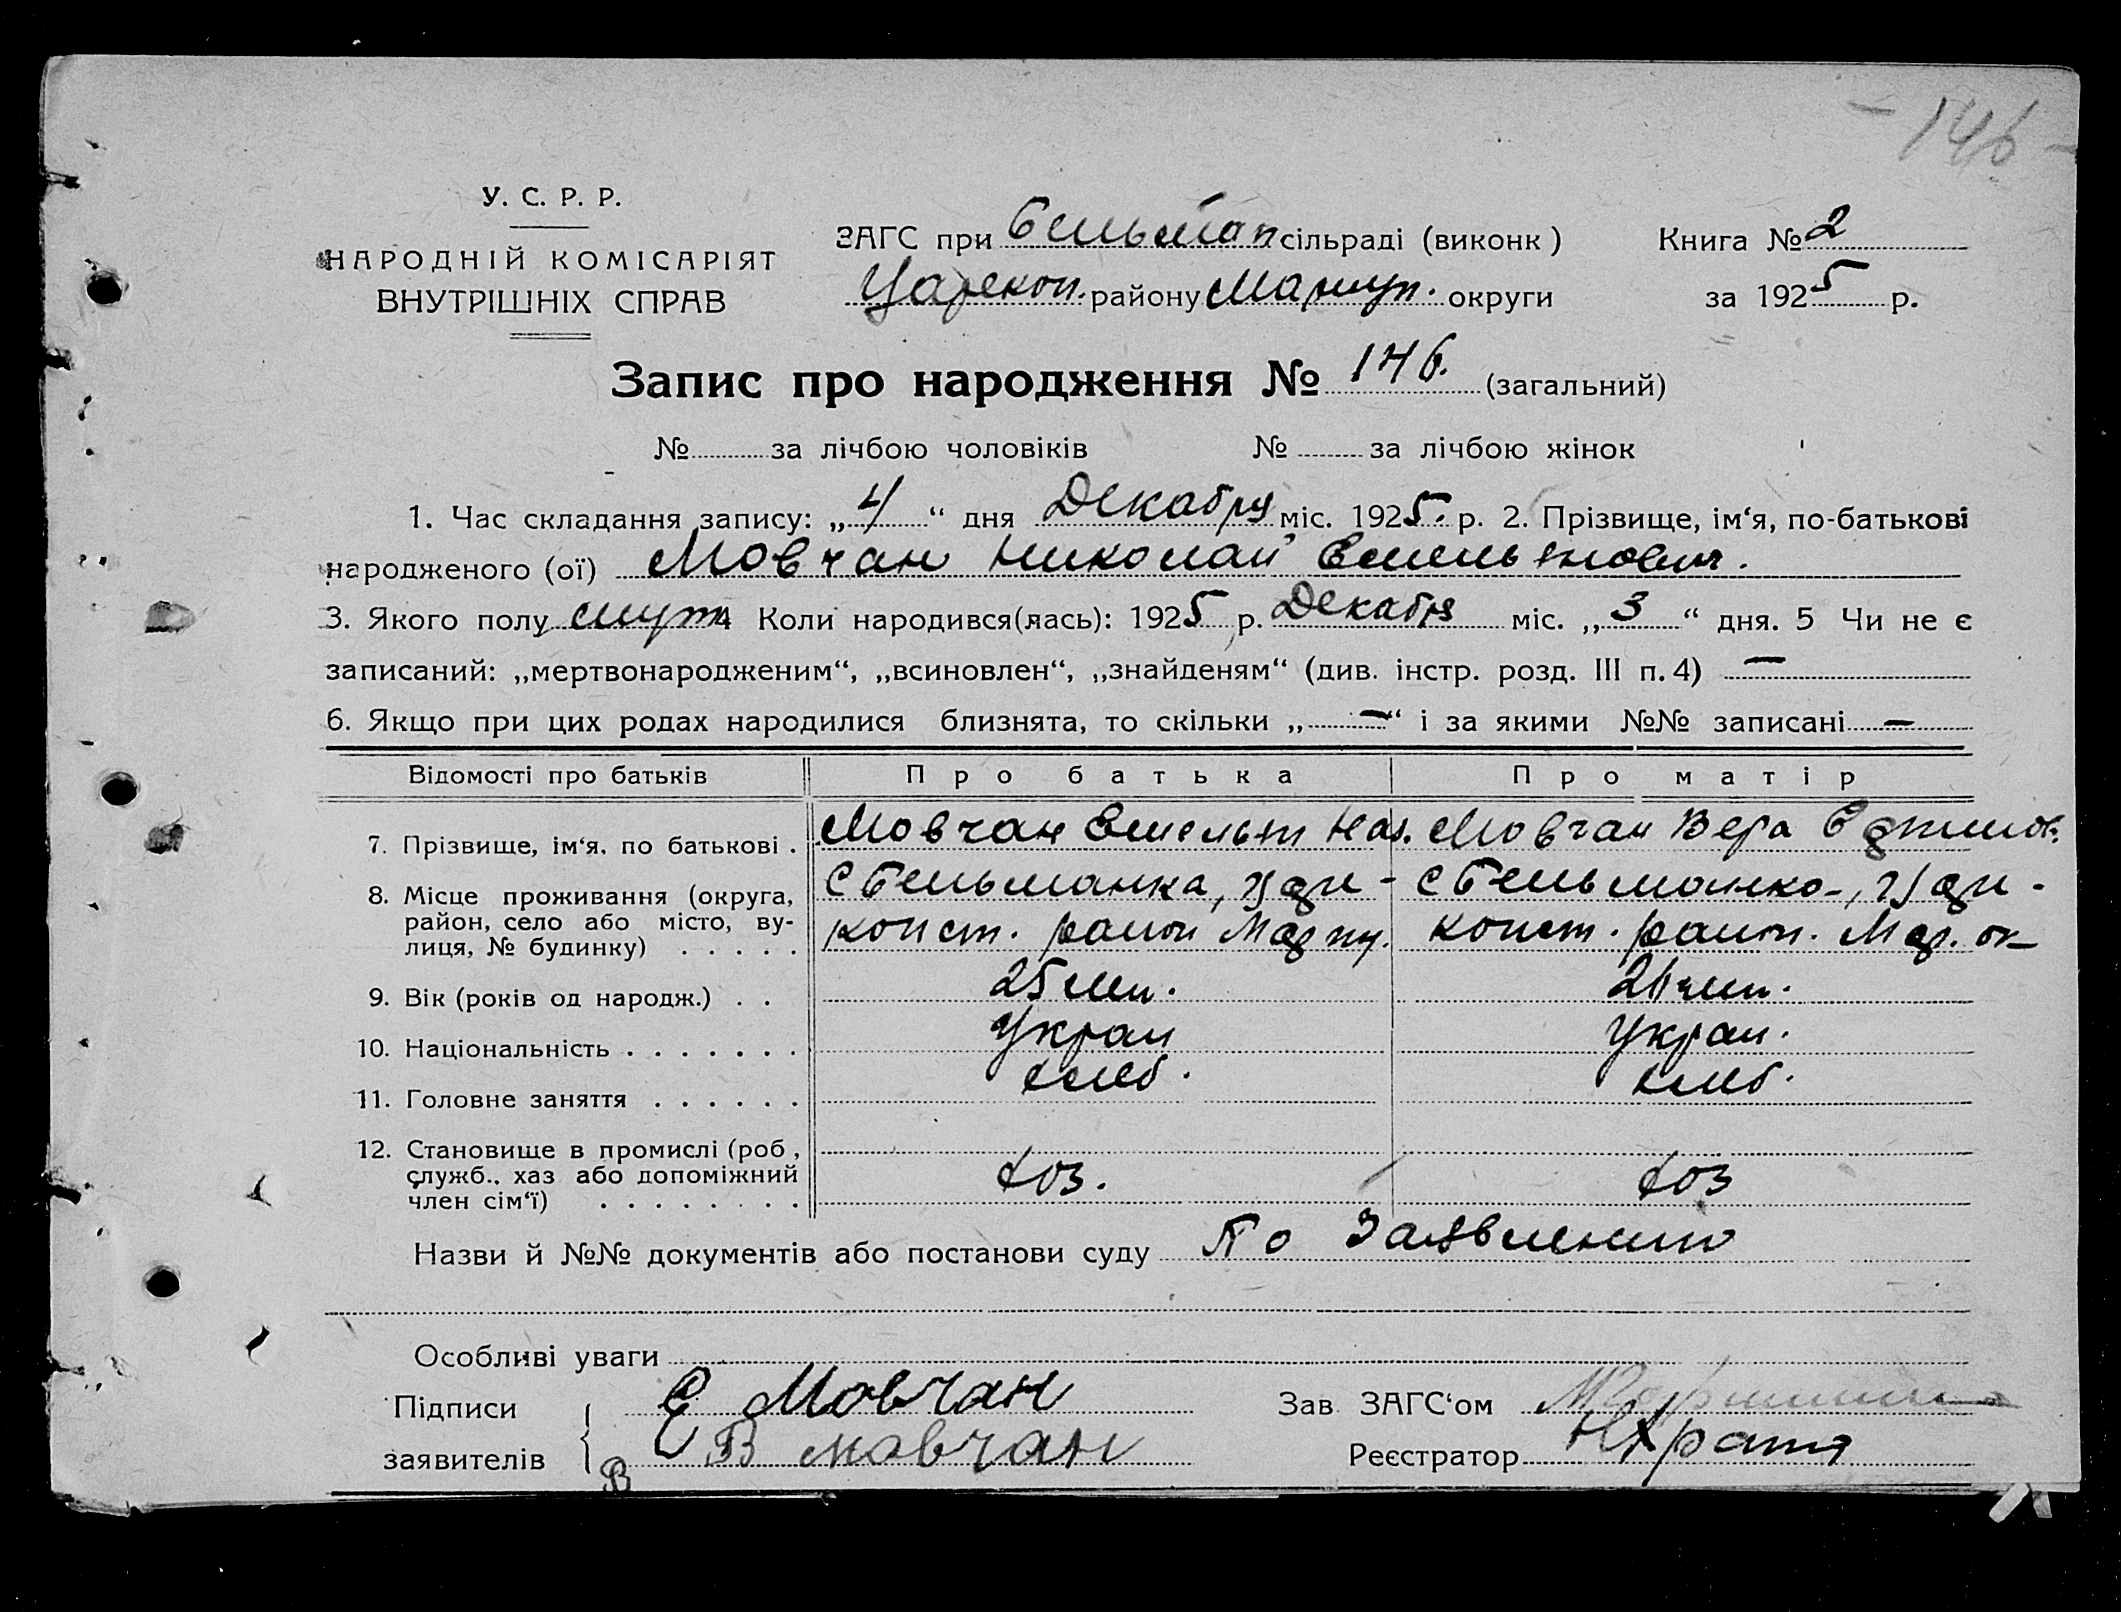 - 146 -
У. С. Р. Р.
НАРОДНІЙ КОМІСАРІЯТ
ВНУТРІШНІХ СПРАВ
ЗАГС при Бельман сільраді (виконк) Книга № 2
Царекон. району Мариуп. округи за 1925 р.
Запис про народження № 146. (загальний)
№ за лічбою чоловіків № за лічбою жінок
1. Час складання запису: „4“ дня Декабря міс. 1925. р. 2. Прізвище, ім‘я, по-батькові
народженого (ої) Мовчан Николай Емельянович.
3. Якого полу муж 4 Коли народився(лась): 1925 р. Декабря міс. „3“ дня. 5 Чи не є
записаний: „мертвонародженим“, „всиновлен“, „знайденям“ (див. інстр. розд. III п. 4) —
6. Якщо при цих родах народилися близнята, то скільки „—“ і за якими №№ записані —
Відомості про батьків Про батька Про матір
7. Прізвище, ім‘я, по батькові . Мовчан Емельян Наз. Мовчан Вера
8. Місце проживання (округа, С Бельманка, Цари- С Бельманка, Цари-
район, село або місто, ву- конст. район Мариу. конст. район. Мар. ок
лиця, № будинку) . . . . .
9. Вік (років од народж.) . . 25 лет.
10. Національність . . . . . . . Украи Украи.
11. Головне заняття . . . . . . хлеб. хлеб.
12. Становище в промислі (роб,
служб., хаз або допоміжний хоз. хоз
член сім‘ї) . . . . . . . .
Назви й №№ документів або постанови суду По Заявлению
Особливі уваги
Підписи Е Мовчан Зав ЗАГС‘ом
заявителів В Мовчан Реєстратор
В